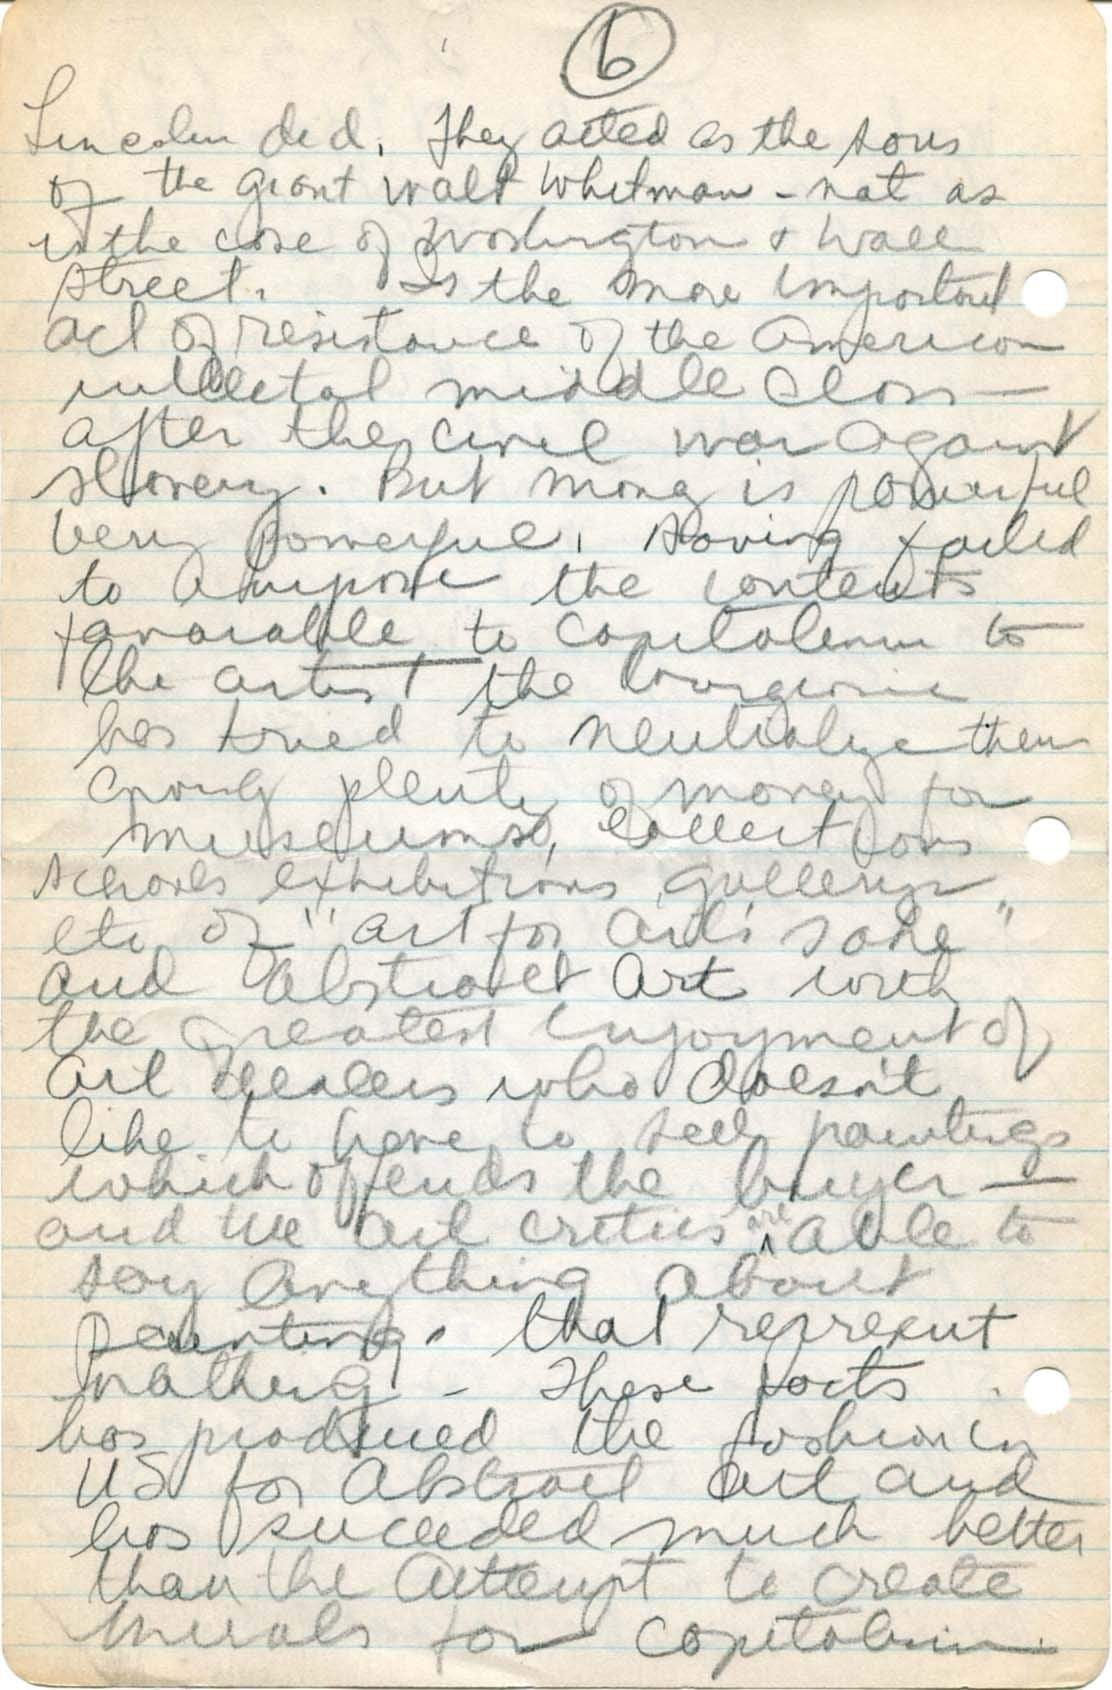 6
Lincoln did. They acted as the sons
of the giant Walt Whitman - not as
is the case of Washington & Wall
street. Is the more important
act of resistance of the American
middle class —
after the civil war against
slavery. But mony is powerful
very powerful. Having failed
to the contents
favorable to capitalism to
the artist the bourgeoisie
has tried to neutralize them
giving plenty of money for
museums, collections
schools exhibitions gallerys
etc of "art for art's sake"
and abstract art with
the greatest enjoyment of
art dealers who doesn't
like to have to sell paintings
which offends the buyer —
and the art critics are able to
say anything about
paintings that represent
nothing - These facts
has produced the fashion in
US for abstract art and
has succeded much better
than the attempt to create
murals for capitalism.